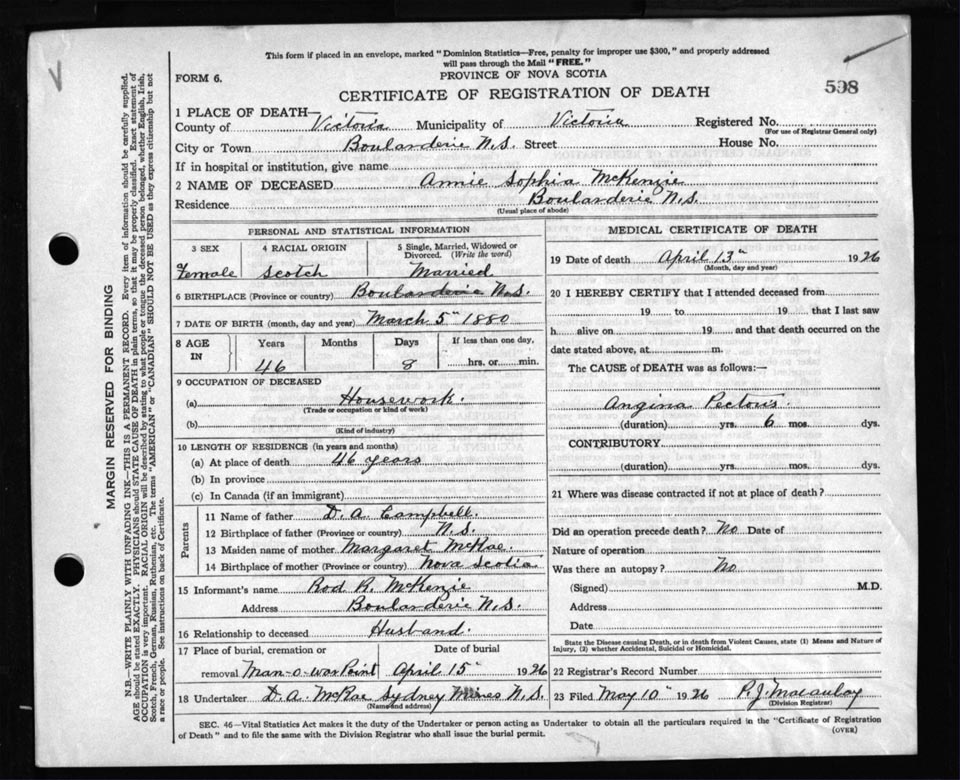 This form if placed in an envelope, marked "Dominion Statistics—Free, penalty for improper use $300," and properly addressed
will pass through the Mail "FREE."
FORM 6.
PROVINCE OF NOVA SCOTIA
CERTIFICATE OF REGISTRATION OF DEATH
598
1 PLACE OF DEATH—
County of Victoria Municipality of Victoria Registered No.
(For use of Registrar General only)
City or Town Boularderie N.S. Street House No.
If in hospital or institution, give name
2 NAME OF DECEASED Annie Sophia McKenzie
Residence Boularderie N.S.
(Usual place of abode)
PERSONAL AND STATISTICAL INFORMATION
3 SEX 4 RACIAL ORIGIN 5 Single, Married, Widowed or
Divorced. (Write the word)
Female Scotch Married
6 BIRTHPLACE (Province or country) Boularderie N.S.
7 DATE OF BIRTH (month, day and year) March 5" 1880
8 AGE
IN
Years Months Days If less than one day,
46 8 hrs. or min.
9 OCCUPATION OF DECEASED
(a) Housework.
(Trade or occupation or kind of work)
(b)
(Kind of industry)
10 LENGTH OF RESIDENCE (in years and months)
(a) At place of death 46 years
(b) In province
(c) In Canada (if an immigrant)
Parents
11 Name of father D. A. Campbell.
12 Birthplace of father (Province or country) N.S.
13 Maiden name of mother Margaret McRae.
14 Birthplace of mother (Province or country) Nova Scotia
15 Informant's name Rod R. McKenzie
Address Boularderie N.S.
16 Relationship to deceased Husband.
17 Place of burial, cremation or Date of burial
removal Man-o-war Point April 15" 1926
18 Undertaker D. A. McRae Sydney Mines N.S.
(Name and address)
MEDICAL CERTIFICATE OF DEATH
19 Date of death April 13th 1926
(Month, day and year)
20 I HEREBY CERTIFY that I attended deceased from
19 to 19 that I last saw
h alive on 19 and that death occurred on the
date stated above, at m.
The CAUSE of DEATH was as follows:—
Angina Pectoris.
(duration) yrs. 6 mos. dys.
CONTRIBUTORY
(duration) yrs. mos. dys.
21 Where was disease contracted if not at place of death?
Did an operation precede death? No Date of
Nature of operation
Was there an autopsy? No
(Signed) M.D.
Address
Date
State the Disease causing Death, or in death from Violent Causes, state (1) Means and Nature of
Injury, (2) whether Accidental, Suicidal or Homicidal.
22 Registrar's Record Number
23 Filed May 10" 1926 P. J. Macaulay
(Division Registrar)
SEC. 46—Vital Statistics Act makes it the duty of the Undertaker or person acting as Undertaker to obtain all the particulars required in the "Certificate of Registration
of Death" and to file the same with the Division Registrar who shall issue the burial permit.
(OVER)
MARGIN RESERVED FOR BINDING
N.B.—WRITE PLAINLY WITH UNFADING INK—THIS IS A PERMANENT RECORD. Every item of information should be carefully supplied.
AGE should be stated EXACTLY. PHYSICIANS should STATE CAUSE OF DEATH in plain terms, so that it may be properly classified. Exact statement of
OCCUPATION is very important. RACIAL ORIGIN will be described by stating to what people or tongue the deceased person belonged, whether English, Irish,
Scotch, French, German, Russian, Ruthenian, etc. The terms "AMERICAN" or "CANADIAN" SHOULD NOT BE USED as they express citizenship but not
a race or people. See instructions on back of Certificate.